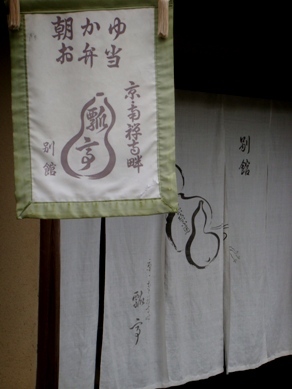 朝がゆ
お弁当
京・南禅寺畔
瓢亭
別館
別館
瓢亭